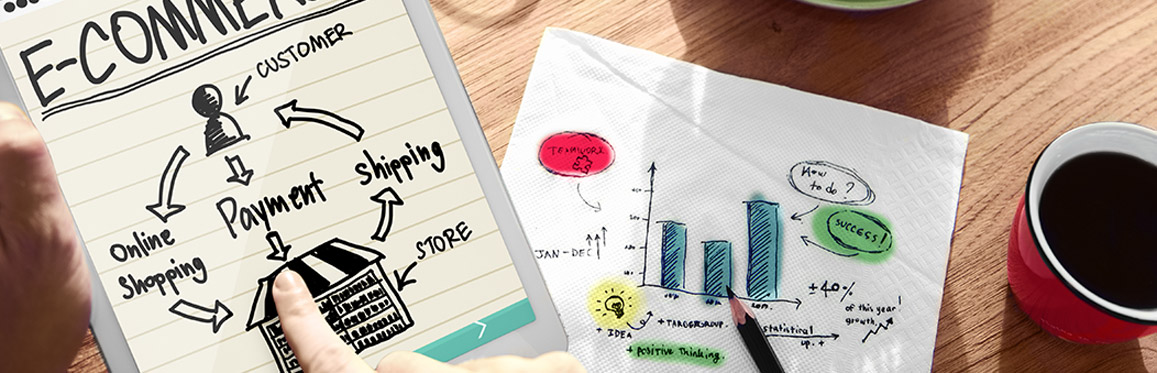 E-COMME
CUSTOMER
Shipping
Payment
Online
Shopping
STORE
TEAMWORK
How
to do?
SUCCESS!
JAN-DEC
± 40%
of this year!
growth
+ IDEA
+ TARGETGROUP.
statistical
up. +
+ Positive Thinking.